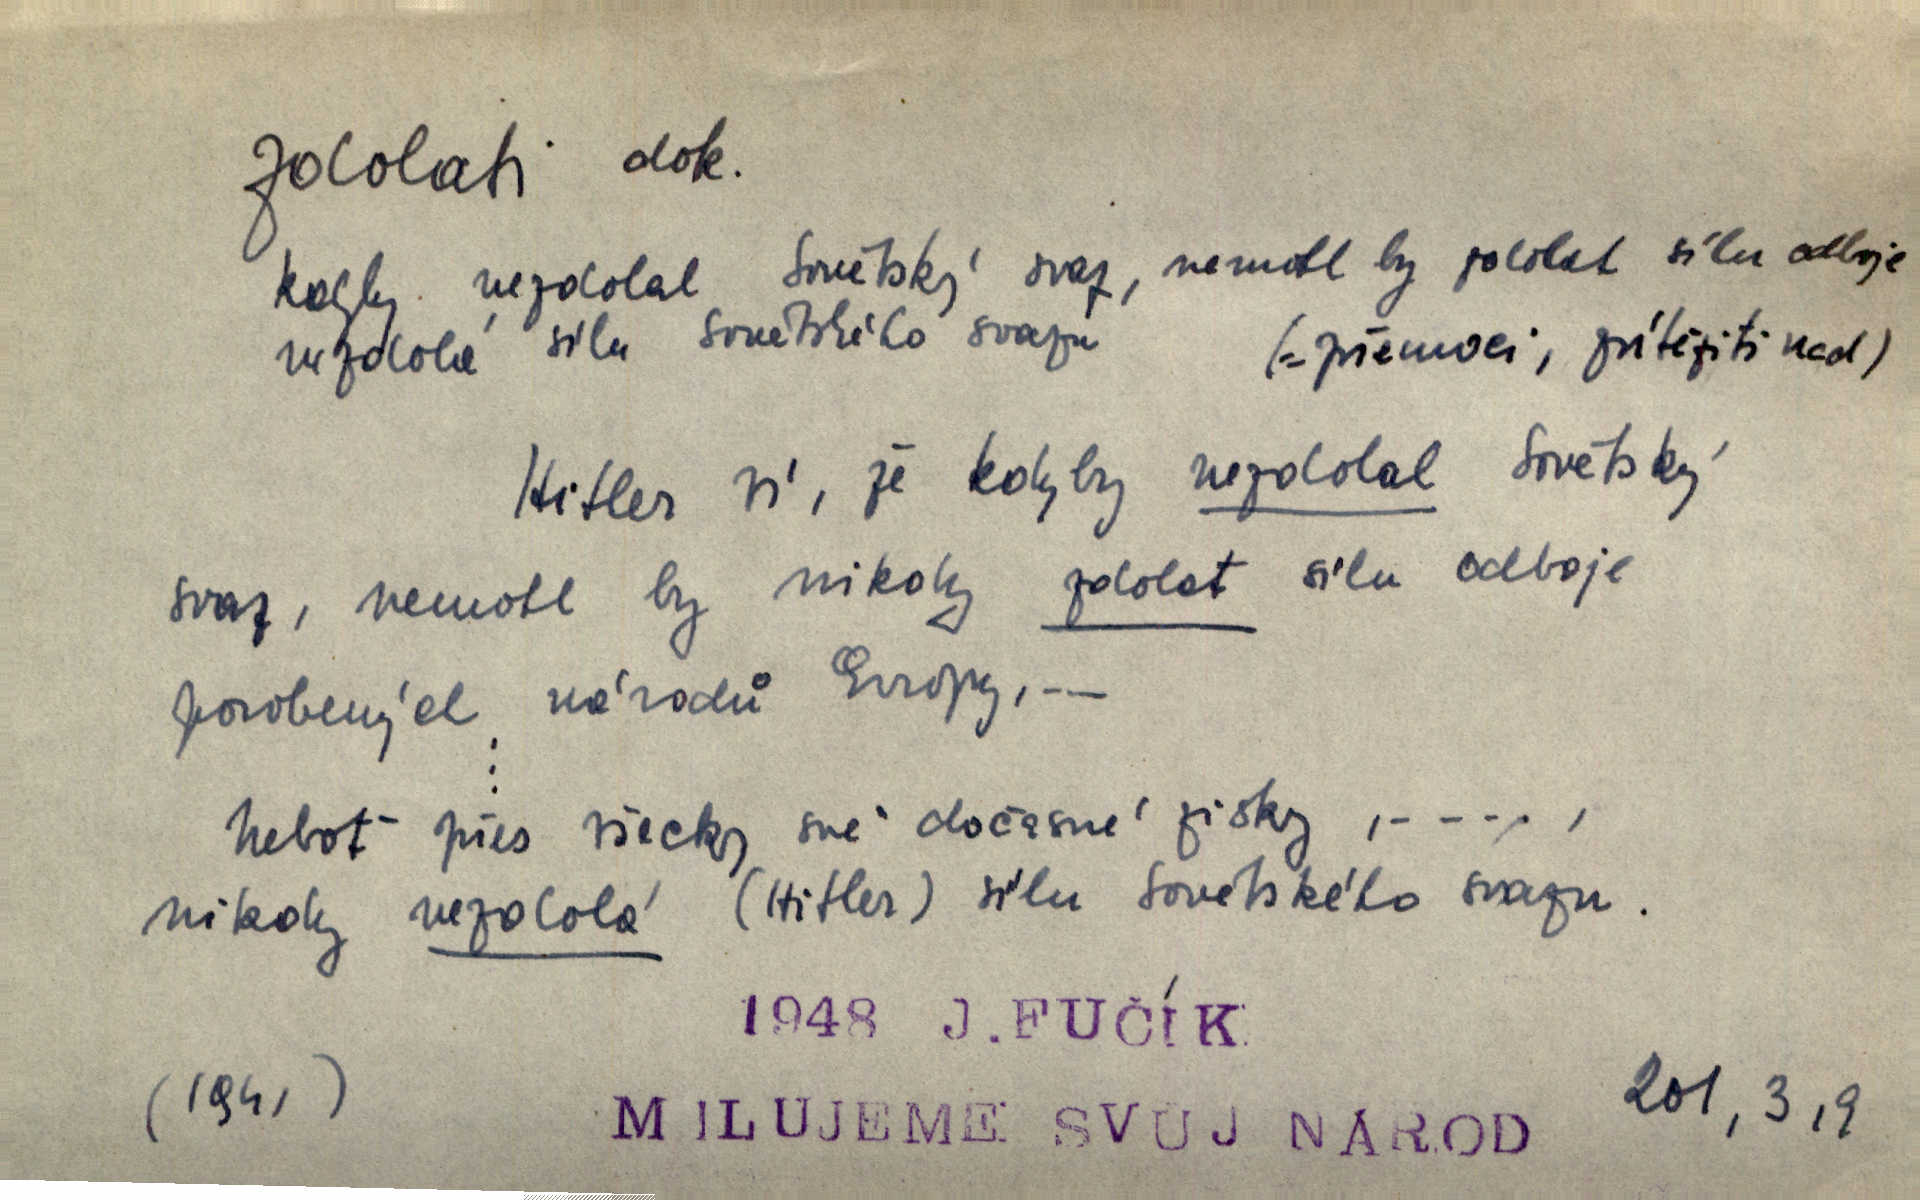 zdolati dok.
kdyby nezdolal Sovětský svaz, nemohl by zdolat sílu odboje
nezdolá sílu Sovětského svazu (= přemoci, zvítěziti nad)
Hitler ví, že kdyby nezdolal Sovětský
svaz, nemohl by nikdy zdolat sílu odboje
porobených národů Evropy, ---
Neboť přes všecky své dočasné zisky, ----,
nikdy nezdolá (Hitler) sílu Sovětského svazu.
1948 J.FUČÍK
(1941) MILUJEME SVUJ NAROD 201, 3, 9